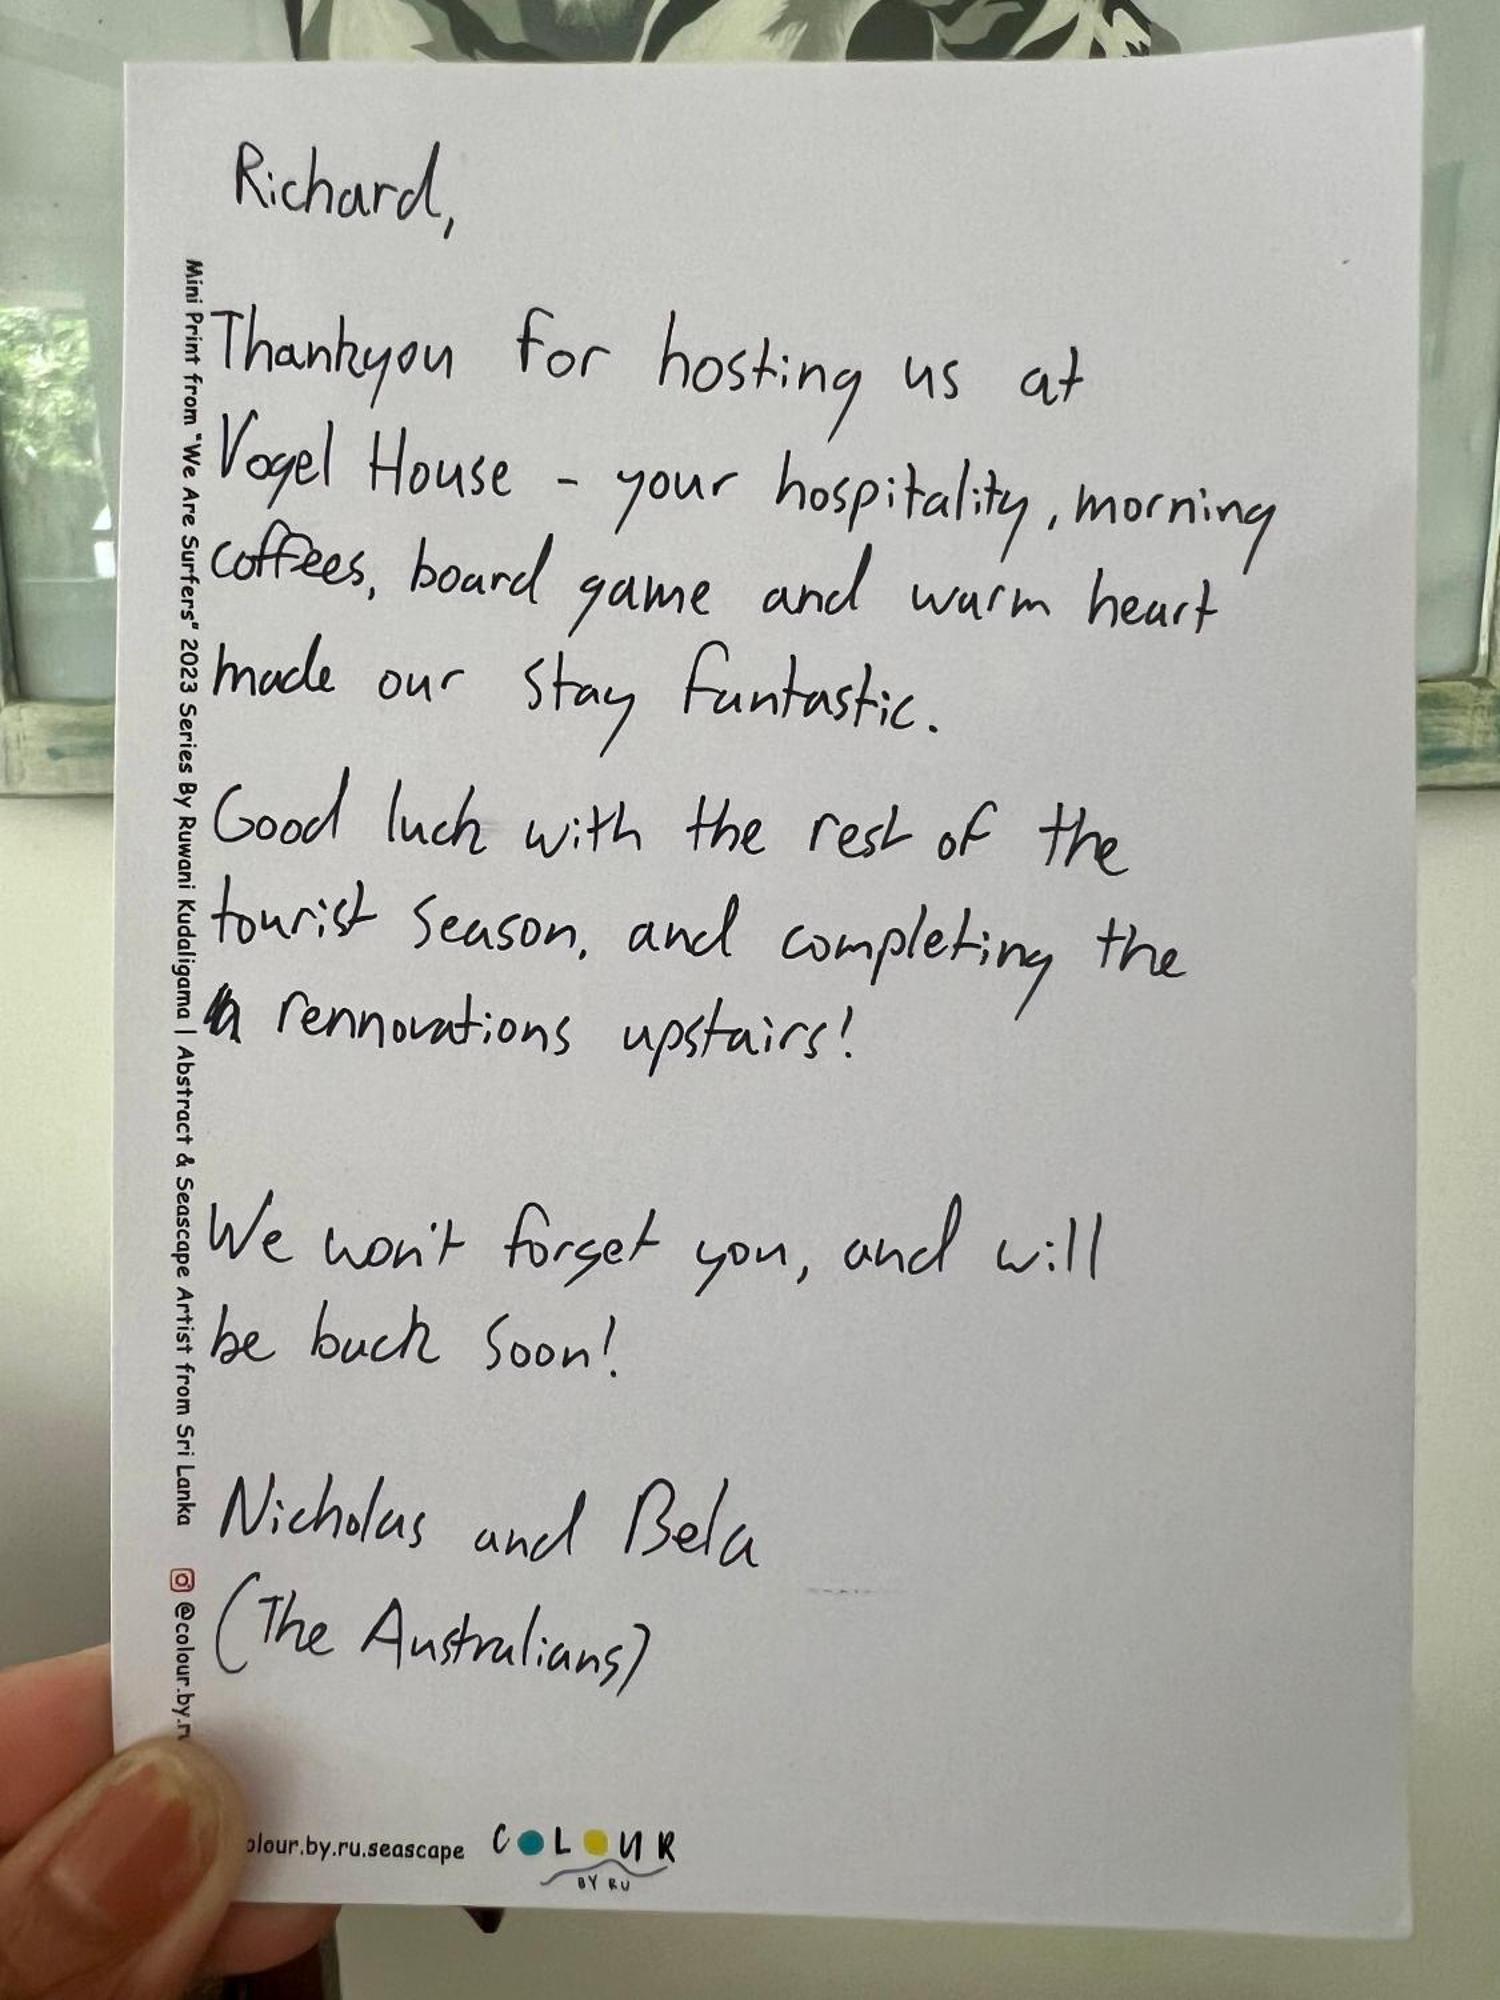 Richard,
Thankyou for hosting us at
Vogel House - your hospitality, morning
coffees, board game and warm heart
made our stay fantastic.
Good luck with the rest of the
tourist season, and completing the
rennovations upstairs!
We won't forget you, and will
be back soon!
Nicholas and Bela
(The Australians)
Mini Print from "We Are Surfers" 2023 Series By Ruwani Kudaligama | Abstract & Seascape Artist from Sri Lanka @colour.by.r
olour.by.ru.seascape
COLOUR
BY RU